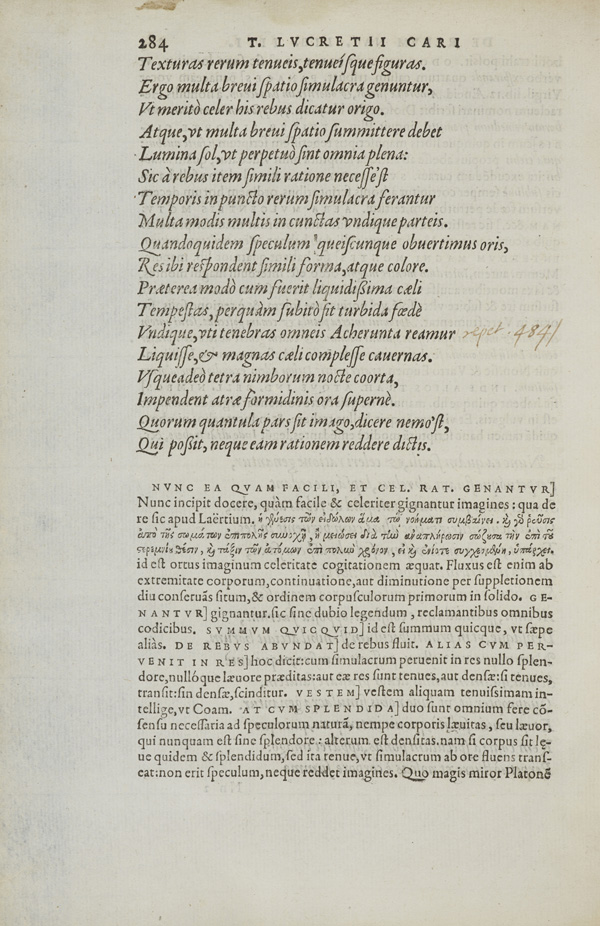 284 T. LVCRETII CARI
Texturas rerum tenueis, tenueísque figuras.
Ergo multa breui spatio simulacra genuntur,
Vt meritò celer his rebus dicatur origo.
Atque, vt multa breui spatio summittere debet
Lumina sol, vt perpetuò sint omnia plena:
Sic à rebus item simili ratione necesse'st
Temporis in puncto rerum simulacra ferantur
Multa modis multis in cunctas vndique parteis.
Quandoquidem speculum queiscunque obuertimus oris,
Res ibi respondent simili forma, atque colore.
Præterea modò cum fuerit liquidißima cæli
Tempestas, perquàm subitò fit turbida fœdè
Vndique, vti tenebras omneis Acherunta reamur repet. 484/
Liquisse, & magnas cæli complesse cauernas.
Vsqueadeò tetra nimborum nocte coorta,
Impendent atræ formidinis ora supernè.
Quorum quantula pars sit imago, dicere nemo'st,
Qui possit, neque eam rationem reddere dictis.
NVNC EA QVAM FACILI, ET CEL. RAT. GENANTVR]
Nunc incipit docere, quàm facile & celeriter gignantur imagines: qua de
re sic apud Laërtium. ἡ γένεσις τῶν εἰδώλων ἅμα τῷ νοήματι συμβαίνει. καὶ γὸ ῥεῦσις
ἀπὸ τῆς σωμάτων ἐπιπολῆς συνεχὴ, ἢ μειώσει διὰ τὴν ἀναπλήρωσιν σώζουσα τὴν ἐπὶ τοῦ
στερεμνίου θέσιν, καὶ τάξιν τῶν ἀτόμων ἐπὶ πολὺν χρόνον, εἰ καὶ ἐνίοτε συγχεομένη, ὑπάρχει.
id est ortus imaginum celeritate cogitationem æquat. Fluxus est enim ab
extremitate corporum, continuatione, aut diminutione per suppletionem
diu conseruãs situm, & ordinem corpusculorum primorum in solido. GE-
NANTVR] gignantur. sic sine dubio legendum, reclamantibus omnibus
codicibus. SVMMVM QVICQVID] id est summum quicque, vt sæpe
aliàs. DE REBVS ABVNDAT] de rebus fluit. ALIAS CVM PER-
VENIT IN RES] hoc dicit: cum simulacrum peruenit in res nullo splen-
dore, nullóque læuore præditas: aut eæ res sunt tenues, aut densæ: si tenues,
transit: sin densæ, scinditur. VESTEM] vestem aliquam tenuissimam in-
tellige, vt Coam. AT CVM SPLENDIDA] duo sunt omnium fere cõ-
sensu necessaria ad speculorum naturã, nempe corporis læuitas, seu læuor,
qui nunquam est sine splendore: alterum est densitas. nam si corpus sit lę-
ue quidem & splendidum, sed ita tenue, vt simulacrum ab ore fluens trans-
eat: non erit speculum, neque reddet imagines. Quo magis miror Platonẽ